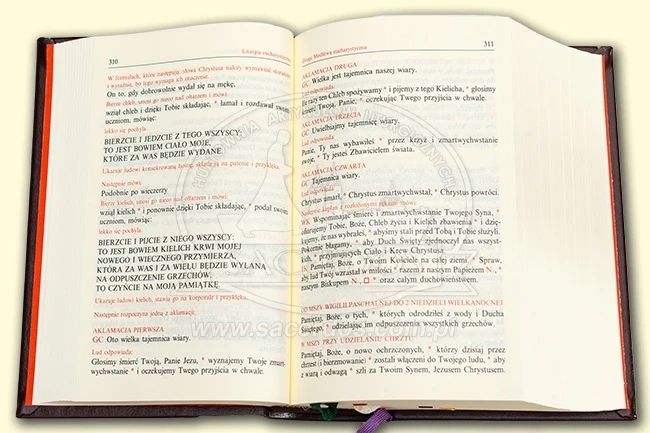 310
Liturgia eucharystyczna
W formułach, które następują, słowa Chrystusa należy wymawiać starannie
i wyraźnie, bo tego wymaga ich znaczenie.
On to, gdy dobrowolnie wydał się na mękę,
Bierze chleb, unosi go nieco nad ołtarzem i mówi:
wziął chleb i dzięki Tobie składając, * łamał i rozdawał swoim
uczniom, mówiąc:
lekko się pochyla.
BIERZCIE I JEDZCIE Z TEGO WSZYSCY:
TO JEST BOWIEM CIAŁO MOJE,
KTÓRE ZA WAS BĘDZIE WYDANE.
Ukazuje ludowi konsekrowaną hostię, składa ją na patenie i przyklęka.
Następnie mówi:
Podobnie po wieczerzy
Bierze kielich, unosi go nieco nad ołtarzem i mówi:
wziął kielich * i ponownie dzięki Tobie składając, * podał swoim
uczniom, mówiąc:
lekko się pochyla.
BIERZCIE I PIJCIE Z NIEGO WSZYSCY:
TO JEST BOWIEM KIELICH KRWI MOJEJ
NOWEGO I WIECZNEGO PRZYMIERZA,
KTÓRA ZA WAS I ZA WIELU BĘDZIE WYLANA
NA ODPUSZCZENIE GRZECHÓW.
TO CZYŃCIE NA MOJĄ PAMIĄTKĘ.
Ukazuje ludowi kielich, stawia go na korporale i przyklęka.
Następnie rozpoczyna jedną z aklamacji.
AKLAMACJA PIERWSZA
GC Oto wielka tajemnica wiary.
Lud odpowiada:
Głosimy śmierć Twoją, Panie Jezu, * wyznajemy Twoje zmart-
wychwstanie * i oczekujemy Twego przyjścia w chwale.
Druga Modlitwa eucharystyczna
311
AKLAMACJA DRUGA
GC Wielka jest tajemnica naszej wiary.
Lud odpowiada:
Ile razy ten Chleb spożywamy * i pijemy z tego Kielicha, * głosimy
śmierć Twoją, Panie, * oczekując Twego przyjścia w chwale.
AKLAMACJA TRZECIA
GC Uwielbiajmy tajemnicę wiary.
Lud odpowiada:
Panie, Ty nas wybawiłeś * przez krzyż i zmartwychwstanie
swoje, * Ty jesteś Zbawicielem świata.
AKLAMACJA CZWARTA
GC Tajemnica wiary.
Chrystus umarł, * Chrystus zmartwychwstał, * Chrystus powróci.
Następnie kapłan z rozłożonymi rękami mówi:
WX Wspominając śmierć i zmartwychwstanie Twojego Syna, *
ofiarujemy Tobie, Boże, Chleb życia i Kielich zbawienia * i dzię-
kujemy, że nas wybrałeś, * abyśmy stali przed Tobą i Tobie służyli.
Pokornie błagamy, * aby Duch Święty zjednoczył nas wszyst-
kich, * przyjmujących Ciało i Krew Chrystusa.
Pamiętaj, Boże, o Twoim Kościele na całej ziemi. * Spraw,
aby lud Twój wzrastał w miłości * razem z naszym Papieżem N., *
naszym Biskupem N. * oraz całym duchowieństwem.
WE MSZY WIGILII PASCHALNEJ DO 2 NIEDZIELI WIELKANOCNEJ
Pamiętaj, Boże, o tych, * których odrodziłeś z wody i Ducha
Świętego, * udzielając im odpuszczenia wszystkich grzechów.
WE MSZY PRZY UDZIELANIU CHRZTU
Pamiętaj, Boże, o nowo ochrzczonych, * którzy dzisiaj przez
chrzest (i bierzmowanie) * zostali włączeni do Twojego ludu, * aby
z wiarą i odwagą * szli za Twoim Synem, Jezusem Chrystusem.
www.sacrados.com.pl